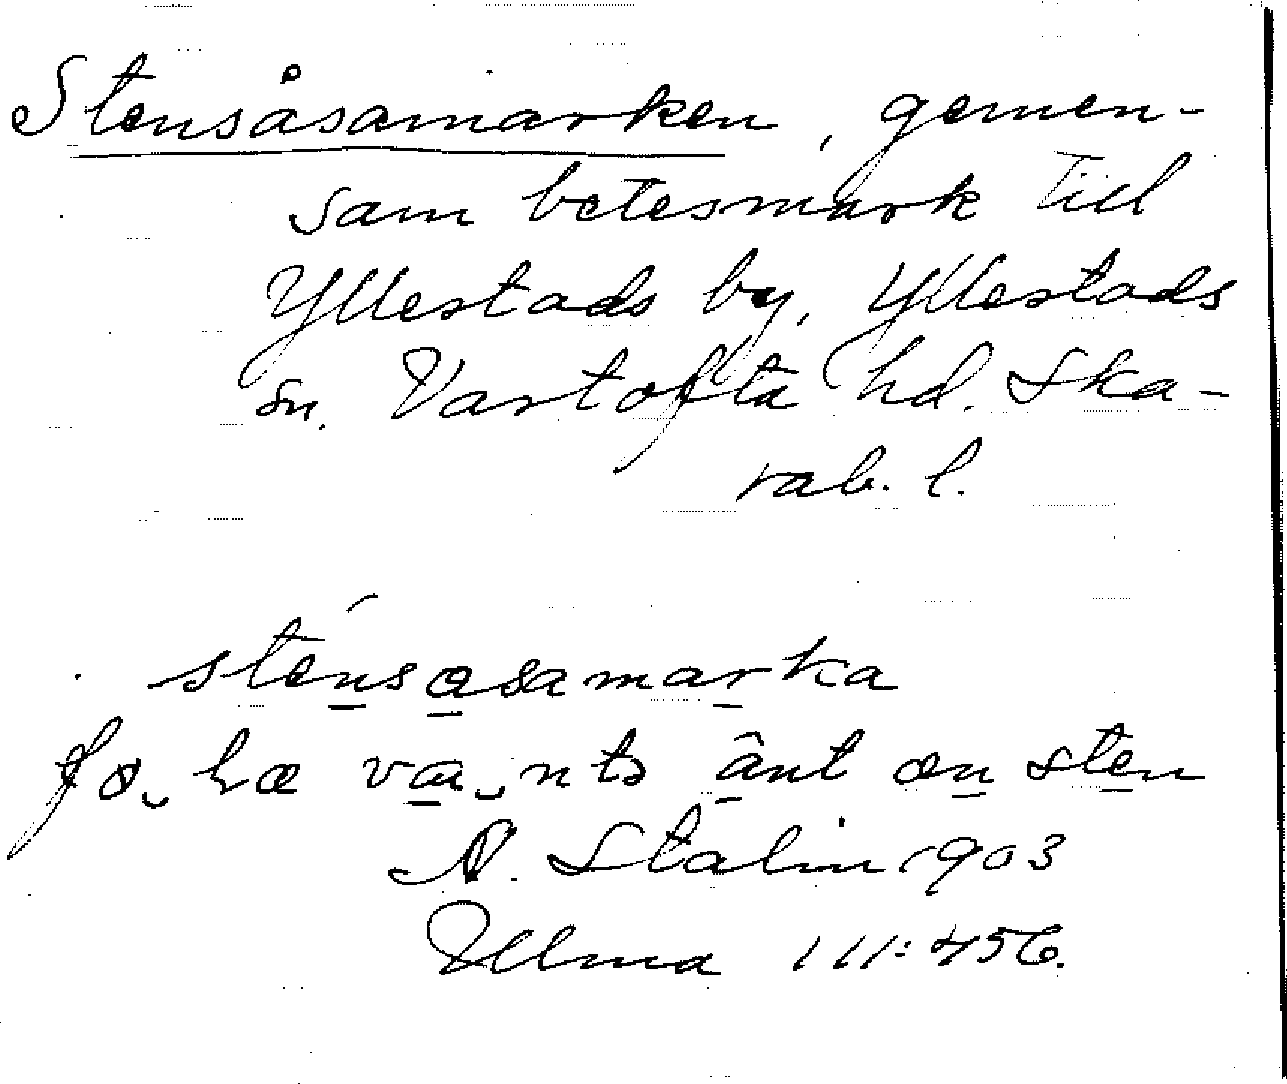 Stensåsamarken, gemen-
sam betesmark till
Yllestads by, Yllestads
sn. Vartofta hd. Ska-
rab. l.
stensasamarka
sten
N. Stalin 1903
Ulma 111:456.